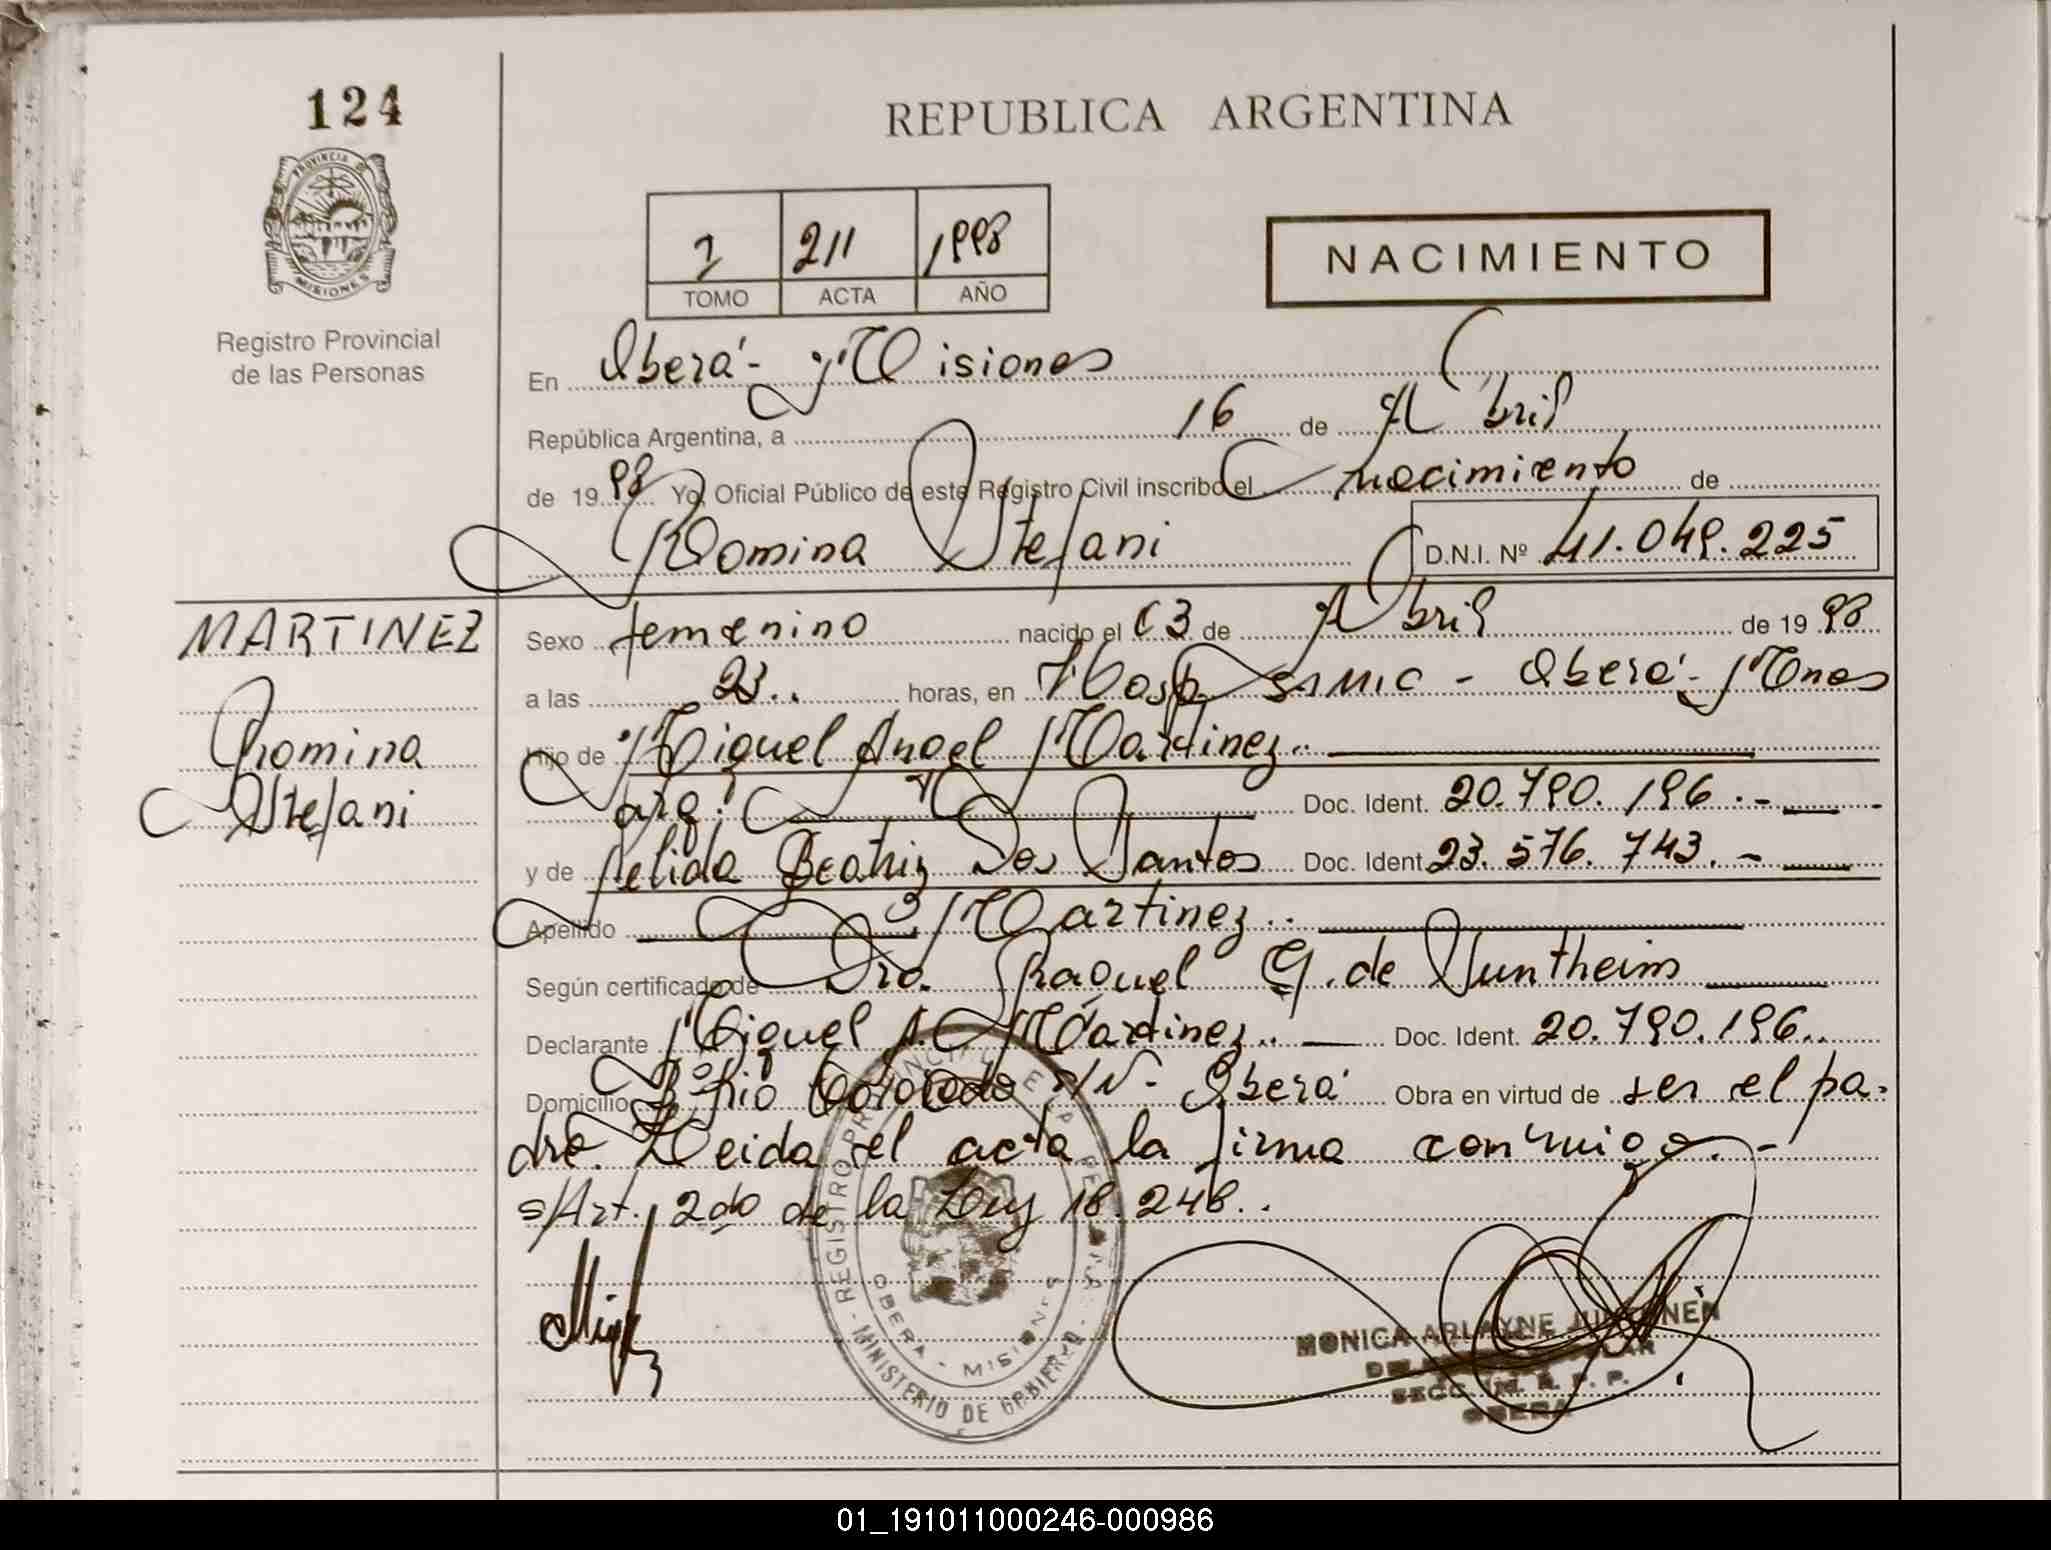 124
REPUBLICA ARGENTINA
PROVINCIA DE MISIONES
Registro Provincial
de las Personas
1 211 1998
TOMO ACTA AÑO
NACIMIENTO
En Oberá - Misiones
República Argentina, a 16 de Abril
de 1998 Yo, Oficial Público de este Registro Civil inscribo el nacimiento de
Romina Stefani D.N.I. Nº 41.049.225
MARTINEZ
Romina
Stefani
Sexo femenino nacido el 03 de Abril de 1998
a las 23.. horas, en Hosp SAMIC - Oberá - Mnes
Hijo de Miguel Angel Martinez..
arg. Doc. Ident. 20.790.196.-
y de Nelida Beatriz Dos Santos Doc. Ident. 23.576.743.-
Apellido Martinez..
Según certificado de Dra. Raquel G. de
Declarante Miguel A. Martinez.. Doc. Ident. 20.790.196..
Domicilio Bº Rio s/Nº- Oberá Obra en virtud de ser el pa-
dre. Leida el acta la firma conmigo.-
s/Art. 2do de la Ley 18.248..
REGISTRO PROVINCIAL DE LAS PERSONAS
OBERA - MISIONES
MINISTERIO DE GOBIERNO
MONICA ARLAYNE
OBERA
01_191011000246-000986